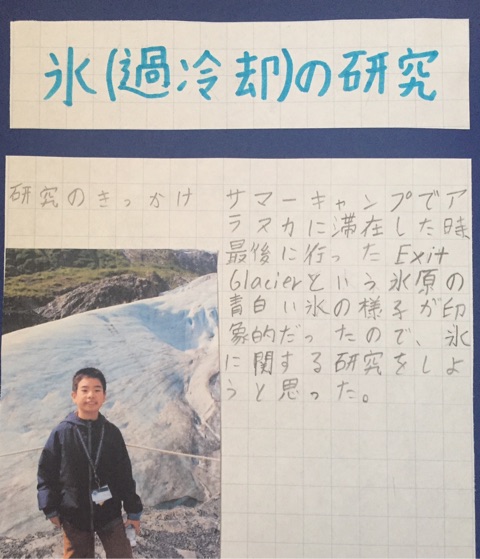 氷(過冷却)の研究
研究のきっかけ
サマーキャンプでア
ラスカに滞在した時
最後に行ったExit
Glacierという氷原の
青白い氷の様子が印
象的だったので、氷
に関する研究をしよ
うと思った。